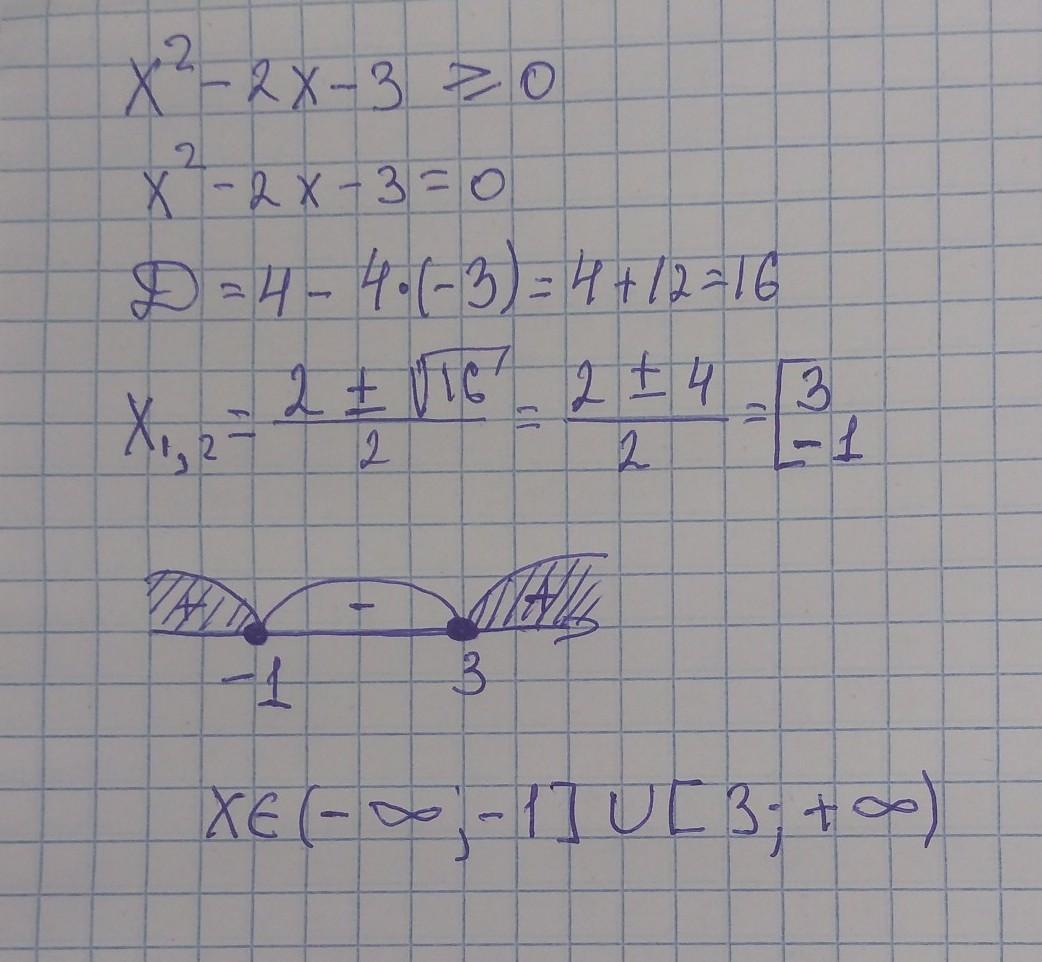 x² - 2x - 3 ≥ 0
x² - 2x - 3 = 0
D = 4 - 4·(-3) = 4 + 12 = 16
x₁,₂ = (2 ± √16)/2 = (2 ± 4)/2 = [3 -1
+ - +
-1 3
x ∈ (-∞; -1] ∪ [3; +∞)